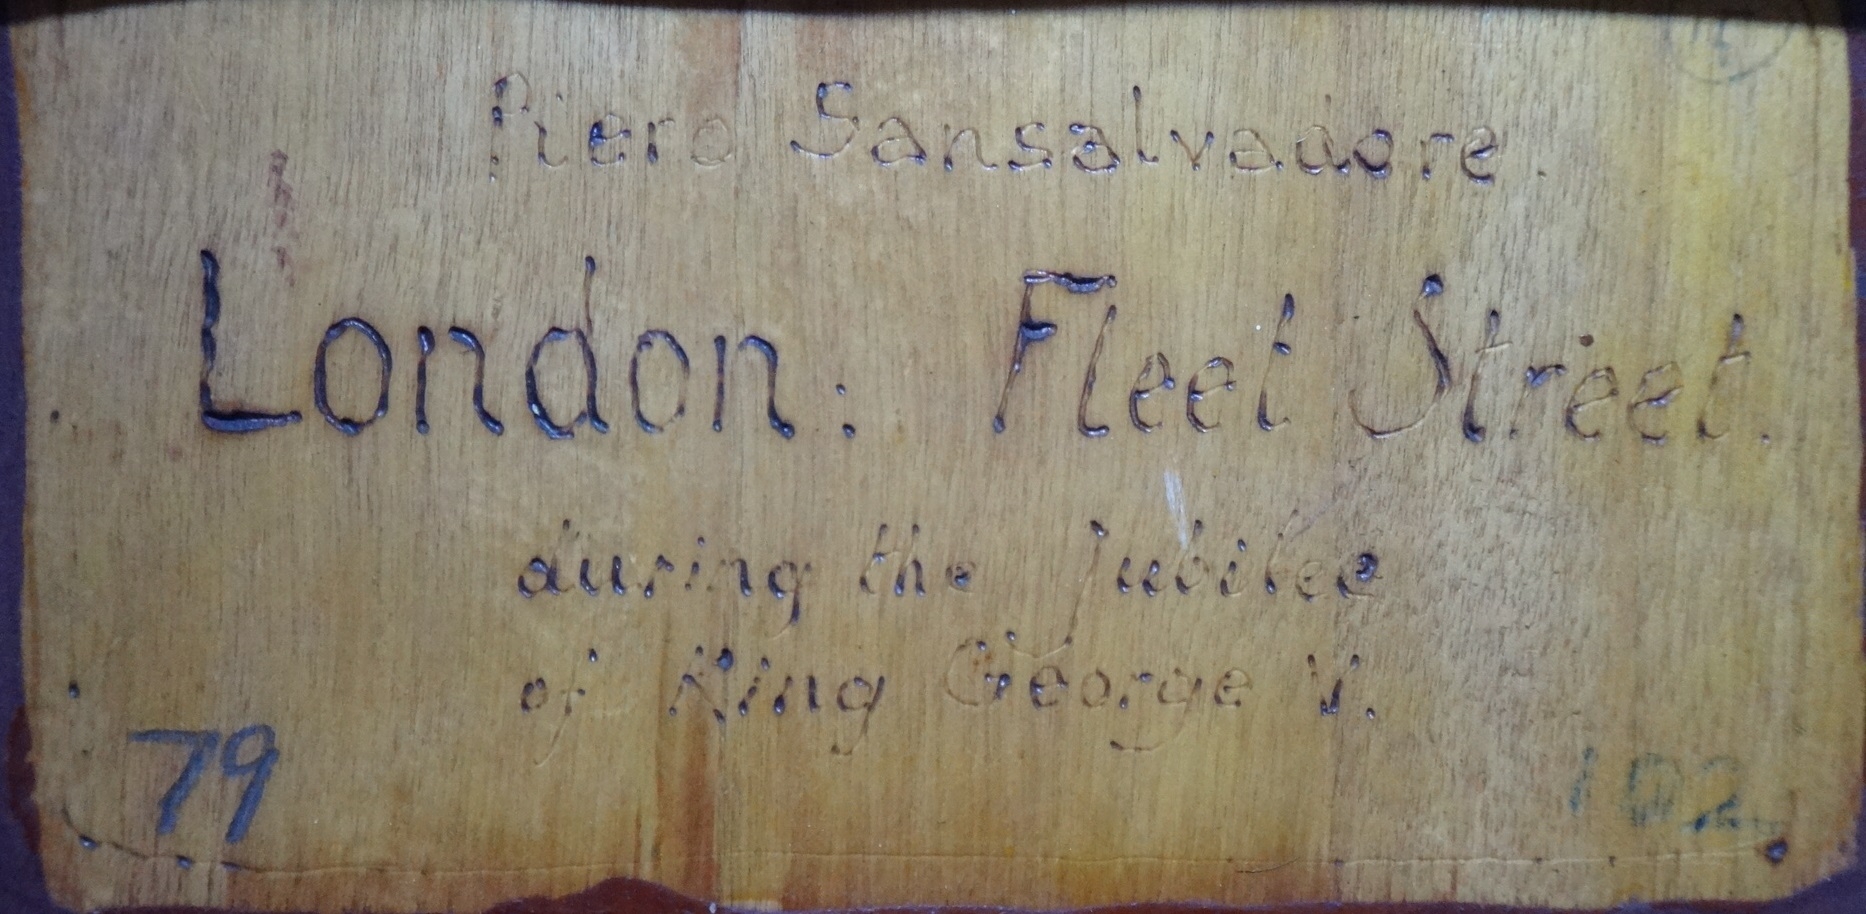 Piero Sansalvadore.
London: Fleet Street.
during the Jubilee
of King George V.
79 102